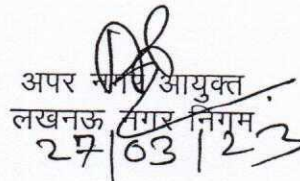 अपर नगर आयुक्त
लखनऊ नगर निगम
27/03/23